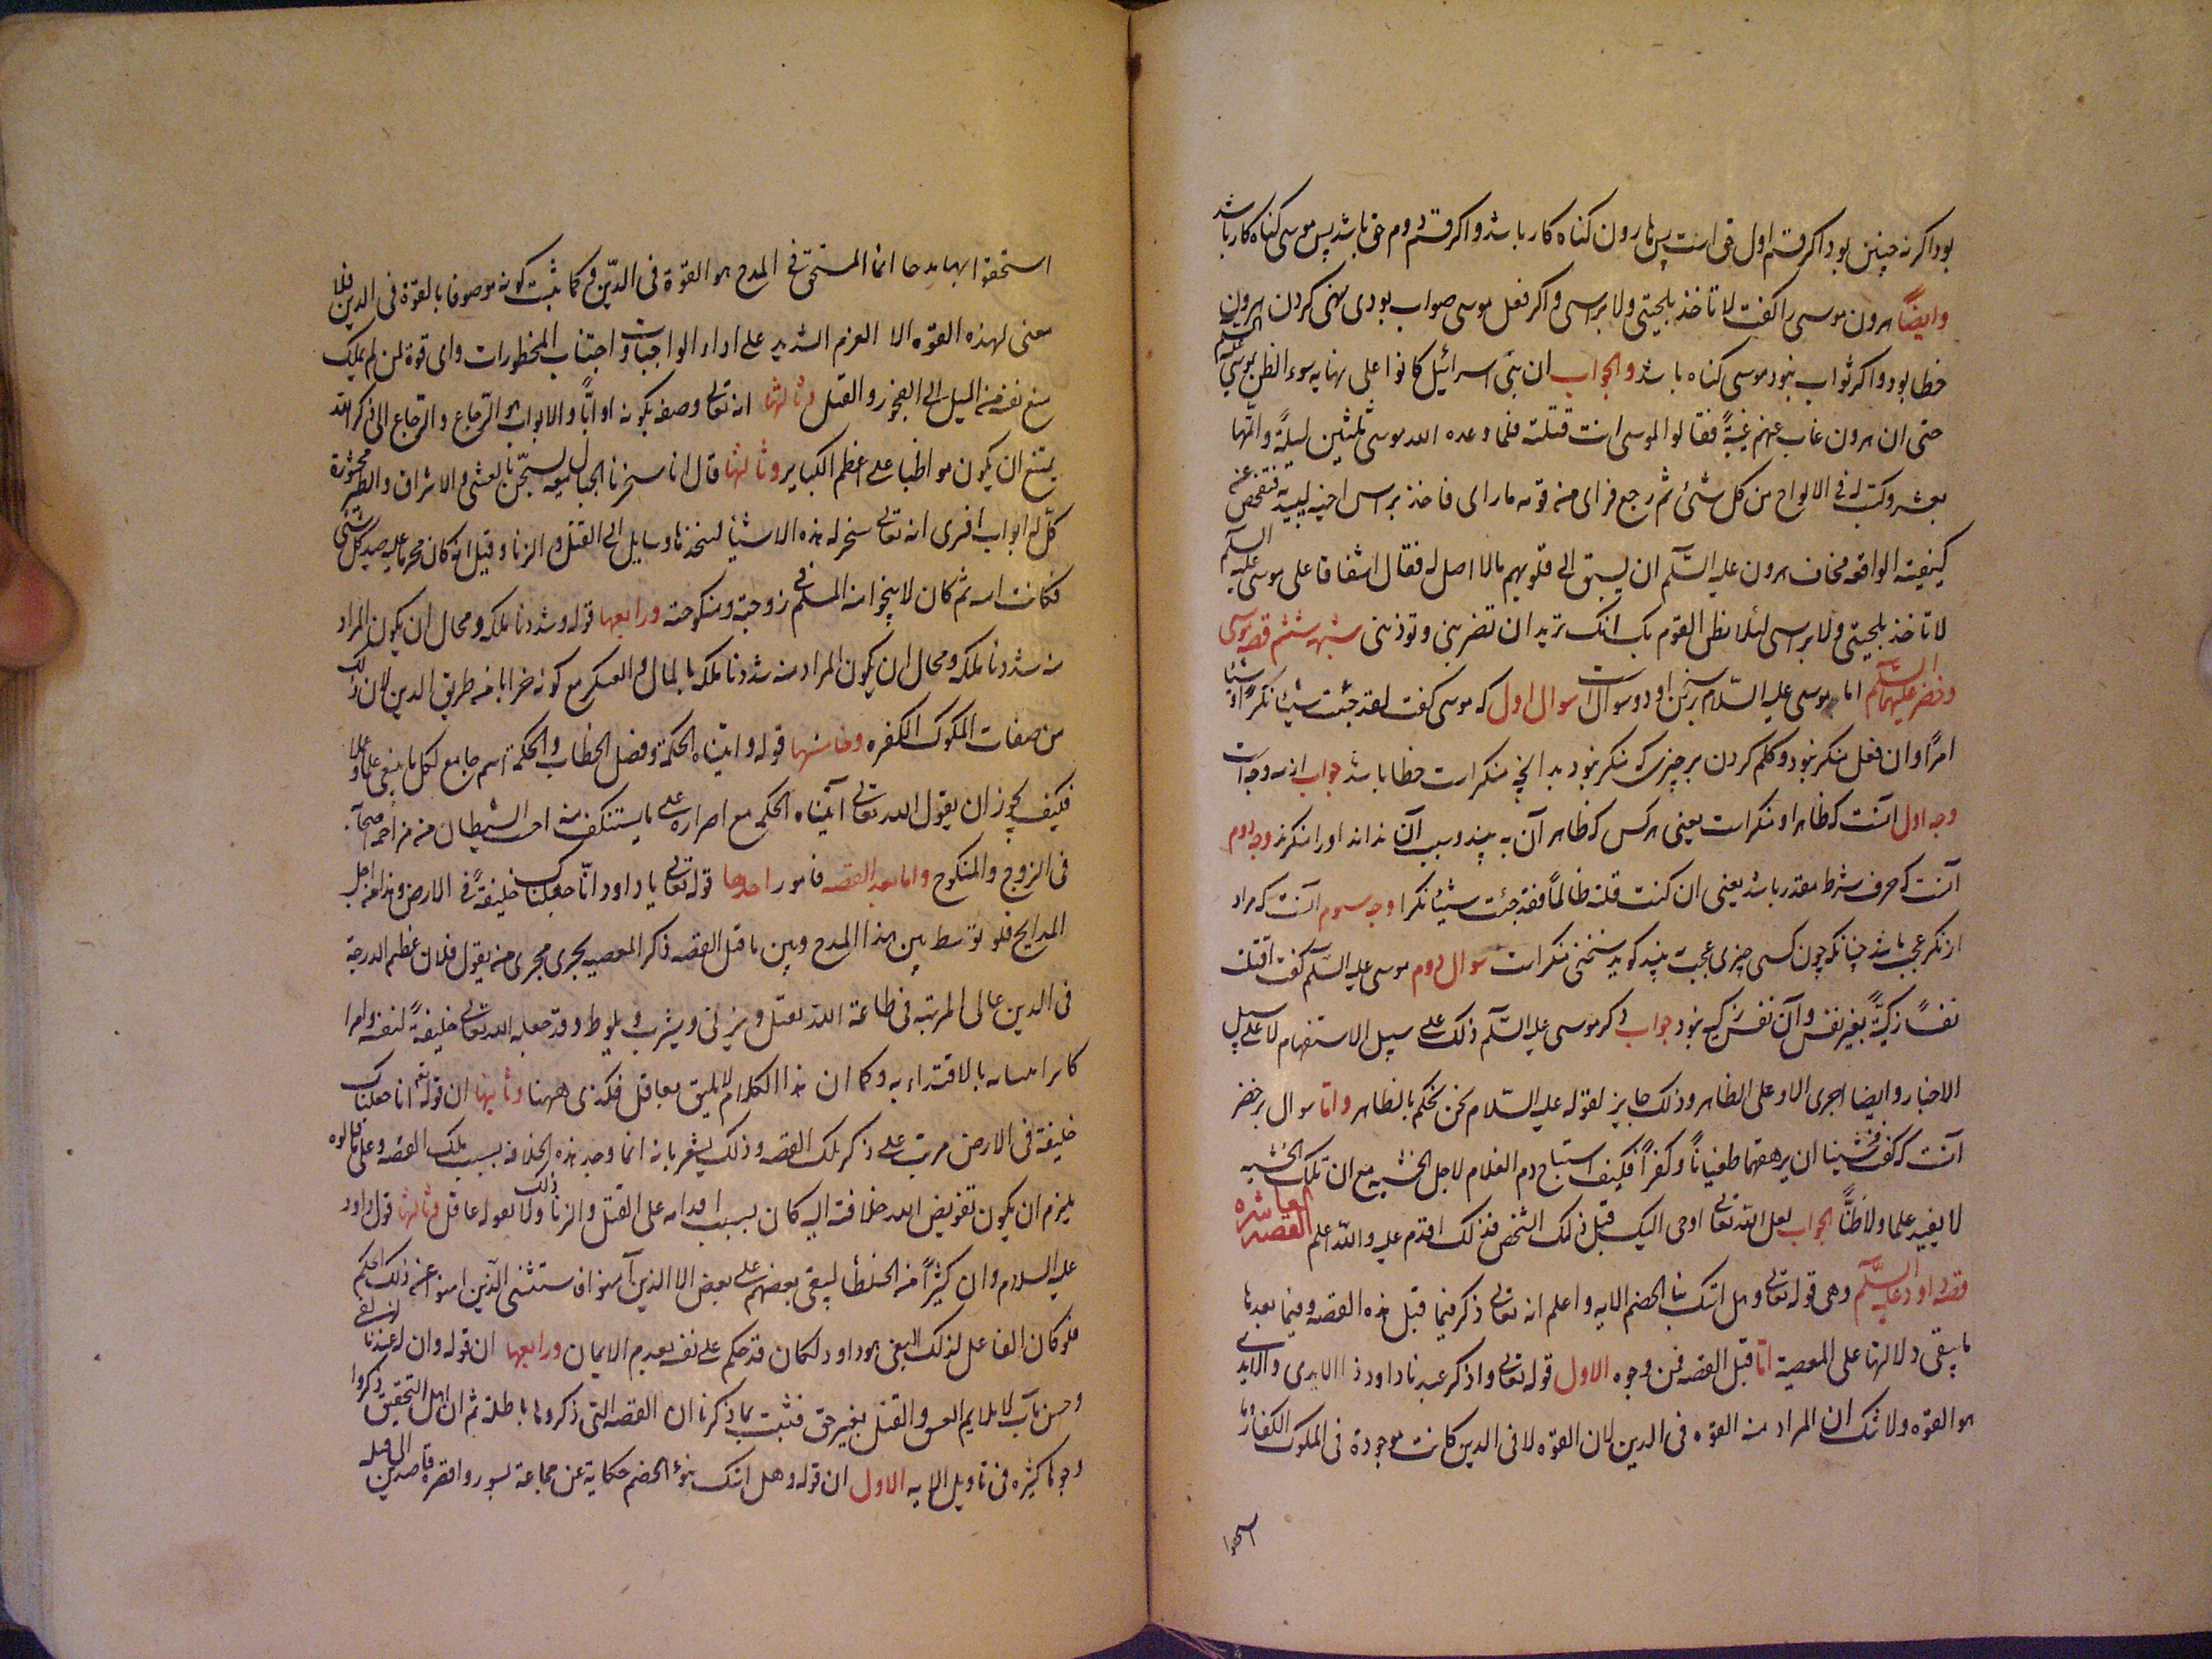 بود اکر نه چنین بود اکر قسم اول حق است پس هارون کناه کار باشد و اکر قسم دوم حق باشد پس موسی کناه کار باشد
وایضاً هرون موسی را کفت لا تاخذ بلحیتی ولا براسی و اکر فعل موسی صواب بودی نهی کردن هرون
خطا بود و اکر ثواب نبود موسی کناه باشد والجواب ان بنی اسرائیل کانوا علی نهایه سوء الظن بموسی علیه السلم
حتی ان هرون غاب عنهم غیبةً فقالوا لموسی انت قتلته فلما وعده الله موسی ثلثین لیلةً واتمها
بعشر وکتب له فی الالواح من کل شئ ثم رجع فرای من قومه ما رای فاخذ براس اخیه لیدنیه فتفحص عنه
کیفیته الواقعه فخاف هرون علیه السلم ان یسبق الی قلوبهم ما لا اصل له فقال اشفاقا علی موسی علیه السلم
لا تاخذ بلحیتی ولا براسی لئلا یظن القوم بک انک ترید ان تضربنی وتوذینی شبهه ششم قصه موسی
وخضر علیهما السلم اما موسی علیه السلام برین او دو سوال است سوال اول که موسی کفت لقد جئت شیئا نکراً او شیئا
امراً وان فعل منکر نبود و حکم کردن بر چیزی که منکر نبود بدانچه منکر است خطا باشد جواب از سه وجه است
وجه اول آنست که ظاهر او منکر است یعنی هر کس که ظاهر آن به بیند و سبب آن نداند او را منکر بند وجه دوم
آنست که حرف شرط مقدر باشد یعنی ان کنت قتلته ظالماً فقد جئت شیئا نکرا وجه سوم آنست که مراد
از نکر عجب باشد چنانکه چون کسی چیزی عجب بیند کوید سخنی منکر است سوال دوم موسی علیه السلم کفت اقتلت
نفساً زکیةً بغیر نفس و آن نفس زکیه نبود جواب ذکر موسی علیه السلم ذلک علی سبیل الاستفهام لا علی سبیل
الاخبار وایضا اجری الامر علی الظاهر وذلک جایز لقوله علیه السلام نحن نحکم بالظاهر واما سوال بر خضر
آنست که کفت فخشینا ان یرهقهما طغیاناً وکفراً فکیف استباح دم الغلام لاجل الخشیه مع ان تلک الخشیه
لا یفید علما ولا ظناً الجواب لعل الله تعالی اوحی الیک قبل ذلک الشخص فلذلک اقدم علیه والله اعلم القصه العاشره
قصه داود علیه السلم وهی قوله تعالی وهل اتیک نبأ الخصم الایه واعلم انه تعالی ذکر فیما قبل هذه القصه وفیما بعدها
ما ینفی دلالتها علی المعصیه اما قبل القصه فمن وجوه الاول قوله تعالی واذکر عبدنا داود ذا الایدی والایدی
هو القوه ولا شک ان المراد منه القوه فی الدین لان القوه لا فی الدین کانت موجودة فی الملوک الکفار وما
استحقوا
استحقوا بها مدحا انما المستحق فی المدح هو القوة فی الدین وکما ثبت کونه موصوفا بالقوة فی الدین فلا
معنی لهذه القوه الا العزم الشدید علی اداء الواجبات واجتناب المحظورات وای قوة لمن لم یملک
منع نفسه من المیل الی الفجور والقتل وثالثها انه تعالی وصفه بکونه اواباً والاواب هو الرجاع والرجاع الی ذکر الله
یمتنع ان یکون مواظبا علی اعظم الکبایر وثالثها قال انا سخرنا الجبال معه یسبحن بالعشی والاشراق والطیر محشورة
کل له اواب افتری انه تعالی سخر له هذه الاشیأ لیتخذها وسایل الی القتل والزنا وقیل انه کان محرما علیه صید کل شئی
فکانت امه ثم کان لا ینجو المسلم فی زوجته ومنکوحته ورابعها قوله وشددنا ملکه ومحال ان یکون المراد
منه شددنا ملکه ومحال ان یکون المراد منه شددنا ملکه بالمال والعسکر مع کونه خرابا من طریق الدین لان ذلک
من صفات الملوک الکفره وخامسها قوله واتیناه الحکمة وفصل الخطاب والحکمة اسم جامع لکل ما ینبغی علما وعملا
فکیف یجوز ان یقول الله تعالی آتیناه الحکمه مع اصراره علی ما یستنکف منه اخبث الشیطان من مزاحمة اصحابه
فی الزوج والمنکوح واما بعد القصه فامور احدها قوله تعالی یا داود انا جعلناک خلیفةً فی الارض وهذا من اجل
المدایح فلو توسط بین هذا المدح وبین ما قبل القصه ذکر المعصیه لجری مجری من یقول فلان عظیم الدرجة
فی الدین عالی المرتبه فی طاعة الله یقتل ویزنی ویشرب ویلوط وقد جعله الله تعالی خلیفةً لنفسه وامرا
بالاقتداء به وکما ان هذا الکلام لا یلیق بعاقل فکذی ههنا وثانیها ان قوله تعالی انا جعلناک
خلیفة فی الارض مرتب علی ذکر تلک القصه وذلک یشعر بانه انما وجد هذه الخلافه بسبب تلک القصه وعلی ما قالوه
یلزم ان یکون تفویض الله خلافته الیه کان بسبب اقدامه علی القتل والزنا وذلک لا یقوله عاقل وثالثها قول داود
علیه السلام وان کثیراً من الخلطأ لیبغی بعضهم علی بعض الا الذین آمنوا فاستثنی الذین امنوا عن ذلک الحکم
فلو کان الفاعل لذلک البغی هو داود لکان قد حکم علی نفسه بعدم الایمان ورابعها ان قوله وان له عندنا لزلفی
وحسن مآب لا یلایم والقتل بغیر حق فثبت بما ذکرنا ان القصه التی ذکروها باطلة ثم ان اهل التحقیق ذکروا
وجوها کثیره فی تاویل الایه الاول ان قوله وهل اتیک نبؤ الخصم حکایة عن جماعة تسوروا قصره قاصدین